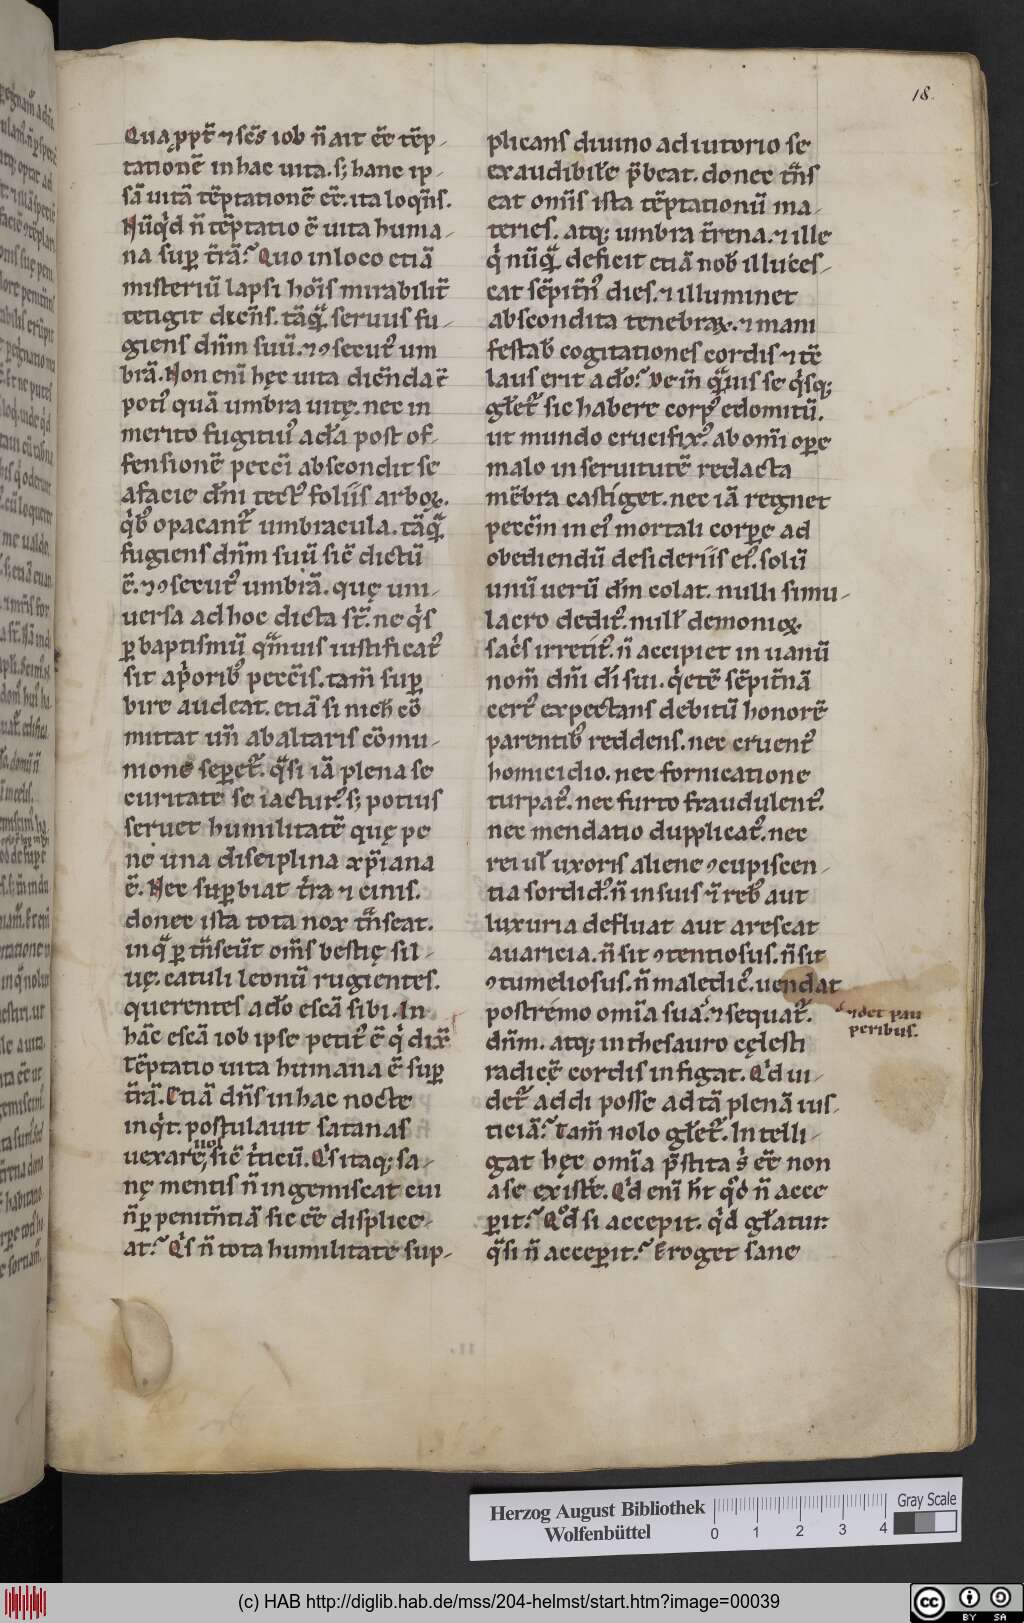 18.
Quaꝓpt̄ ⁊ sc̄s iob n̄ ait ēē tēp-
tationē in hac uita. s; hanc ip-
sā uitā tēptationē ēē. ita loqn̄s.
Nūqͥd n̄ tēptatio ē uita huma-
na suꝑ tr̄ā? Quo in loco etiā
misteriū lapsi hoīs mirabilit̄
tetigit dicēn̄s. tāqͣ̄ seruus fu-
giens dn̄m suū. ⁊ ꝯsecutꝰ um
brā. Non enī hęc uita dicēnda ē
potiꝰ quā umbra uitę. nec in
merito fugitiuꝰ adā post of-
fensionē peccī abscondit se
a facie dn̄i tectꝰ foliis arboꝝ.
qͥbꝰ opacant᷑ umbracula. tāqͣ̄
fugiens dn̄m suū sic̄ dictū
ē. ⁊ ꝯsecutꝰ umbrā. quę uni-
uersa ad hoc dicta st̄. ne qͥs
ꝑ baptismū qͣ̄uis iustificatꝰ
sit a pͥoribꝰ peccīs. tam̄ suꝑ
bire audeat. etiā si nich̄ cō
mittat un̄ ab altaris cōmu-
nione seꝑet᷑. qͣsi iā plena se
curitate se iactur᷑. s; potius
seruet humilitatē quę pe
ne una disciplina xp̄iana
ē. Nec suꝑbiat t̄ra ⁊ cinis.
donec ista tota nox tn̄seat.
in qͣ ꝑtn̄seūt om̄s bestię sil-
uę. catuli leonū rugientes.
querentes a do escā sibi. In
hāc escā iob ipse petitꝰ ē qͥ dix̄
tēptatio uita humana ē suꝑ
tr̄ā. Etiā dn̄s in hac nocte
inqͥt. postulauit satanas
uos
uexare, sic̄ tͥticū. Qͥs itaq; sa-
nę mentis n̄ ingemiscat cui
n̄ ꝑ penitn̄tiā sic ēē displice-
at? Qͥs n̄ tota humilitate sup-
plicans diuino adiutorio se
exaudibilē p̄beat. donec tn̄s
eat om̄is ista tēptationū ma-
teries. atq; umbra t̄rena. ⁊ ille
qͥ nūqͣ̄ deficit etiā nob̄ illuces-
cat sēpit̄nꝰ dies. ⁊ illuminet
abscondita tenebraꝝ. ⁊ mani
festab̄ cogitationes cordis ⁊ tē
laus erit a do? Dein̄ qͣ̄uis se qͥsq;
glet᷑ sic habere corpꝰ edomitū.
ut mundo crucifixꝰ. ab omī oꝑe
malo in seruitutē redacta
mēbra castiget. nec iā regnet
peccm̄ in eiꝰ mortali corꝑe ad
obediendū desideriis eiꝰ. solū
unū uerū dm̄ colat. nulli simu-
lacro deditꝰ. null demonioꝝ
sacͥs irretitꝰ. n̄ accipiet in uanū
nom̄ dn̄i dī sui. qͥetē sēpit̄nā
certꝰ expectans debitū honorē
parentibꝰ reddens. nec cruentꝰ
homicidio. nec fornicatione
turpatꝰ. nec furto fraudulentꝰ.
nec mendatio dupplicatꝰ. nec
rei ul uxoris aliene ꝯcupiscen-
tia sordidꝰ. n̄ in suis ī rebꝰ aut
luxuria defluat aut arescat
auaricia. n̄ sit ꝯtentiosus. n̄ sit
ꝯtumeliosus. n̄ maledicꝰ. uendat
postremo omīa suaͦ. ⁊ sequat᷑.
⁊ det pau
peribus.
dn̄m. atq; in thesauro cęlesti
radicē cordis infigat. Qͥd ui-
det᷑ addi posse ad tā plenā ius-
ticiā? Tam̄ nolo glet᷑. Intelli-
gat hęc omīa p̄stita sͥ ēē non
a se existē. Qͥd enī h̄t qͦd n̄ acce
ꝑit? Qͦd si accepit. qͥd glatur
qͣsi n̄ acceꝑit? Eroget sane
Herzog August Bibliothek
Wolfenbüttel
0 1 2 3 4
Gray Scale
(c) HAB http://diglib.hab.de/mss/204-helmst/start.htm?image=00039
cc BY SA